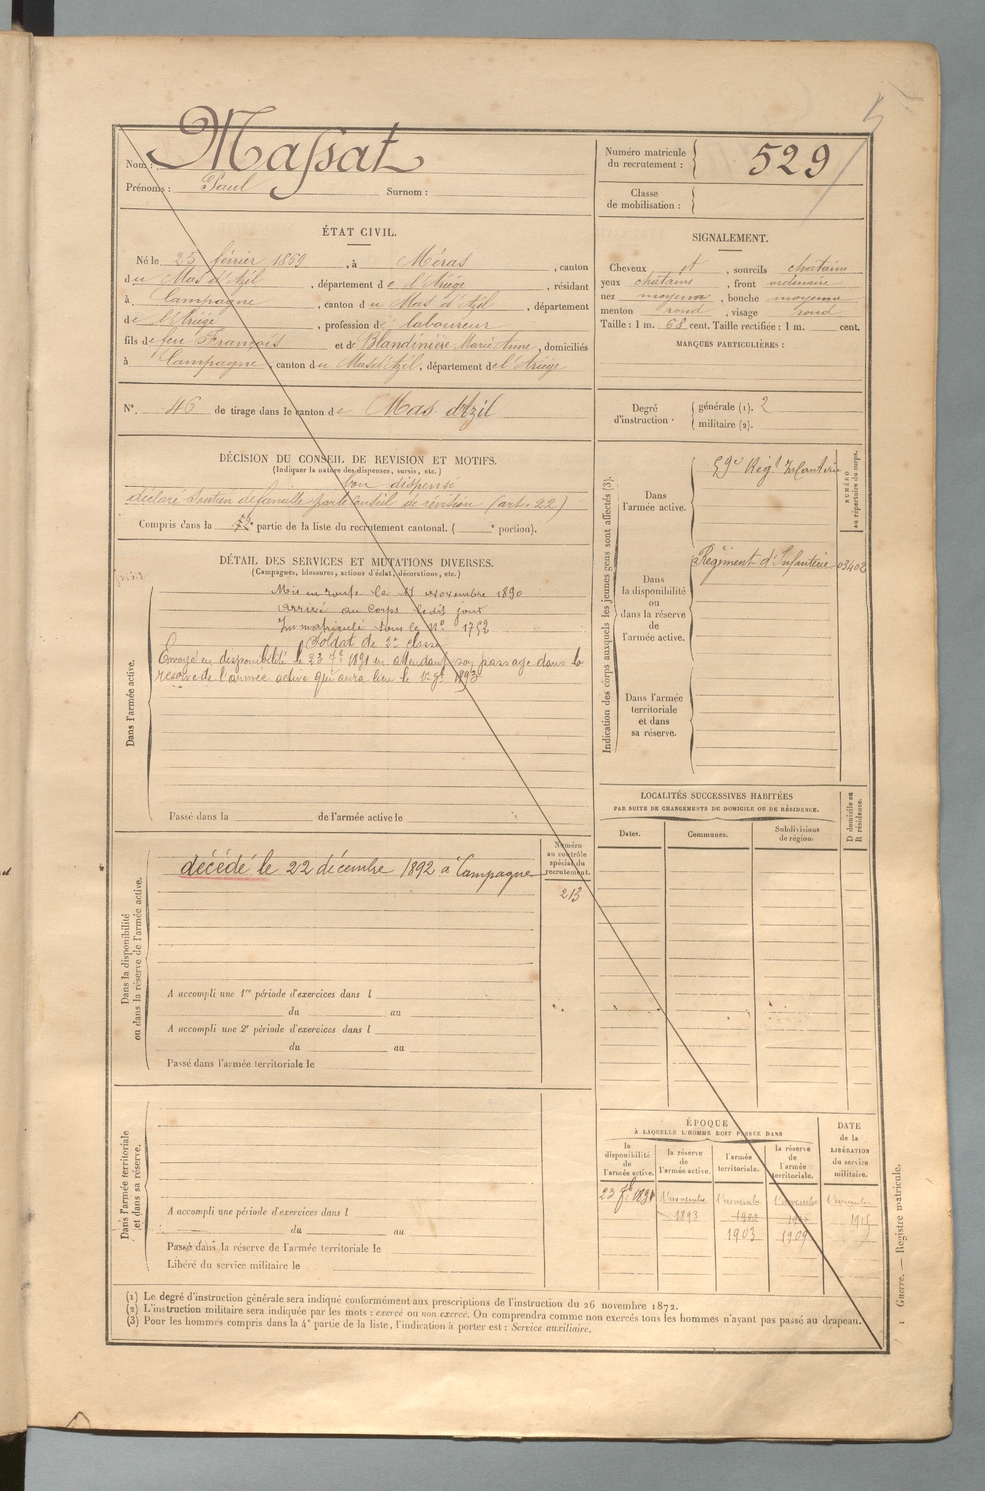 Nom : Massat
Prénoms : Paul Surnom :
Numéro matricule du recrutement : 529
Classe de mobilisation :
ÉTAT CIVIL.
Né le 25 février 1869, à Méras, canton
du Mas d'Azil, département de l'Ariège, résidant
à Campagne, canton du Mas d'Azil, département
de l'Ariège, profession de laboureur
fils de feu François et de Blandinière Marie Anne, domiciliés
à Campagne, canton du Mas d'Azil, département de l'Ariège
N° 46 de tirage dans le canton de Mas d'Azil
SIGNALEMENT.
Cheveux et, sourcils chatains
yeux châtains, front ordinaire
nez moyen, bouche moyenne
menton rond, visage rond
Taille : 1 m. 68 cent. Taille rectifiée : 1 m. cent.
MARQUES PARTICULIÈRES :
Degré d'instruction
générale (1). 2
militaire (2).
DÉCISION DU CONSEIL DE REVISION ET MOTIFS.
(Indiquer la nature des dispenses, sursis, etc.)
bon dispensé
déclaré soutien de famille par le Conseil de révision (art. 22)
Compris dans la 2e partie de la liste du recrutement cantonal. ( e portion).
DÉTAIL DES SERVICES ET MUTATIONS DIVERSES.
(Campagnes, blessures, actions d'éclat, décorations, etc.)
Dans l'armée active.
Mis en route le 11 novembre 1890
arrivé au corps ledit jour
Immatriculé sous le N° 1752
Soldat de 2e classe
Envoyé en disponibilité le 23 7bre 1891 en attendant son passage dans la
réserve de l'armée active qui aura lieu le 1er 9bre 1893
Passé dans la de l'armée active le
Indication des corps auxquels les jeunes gens sont affectés (3).
NUMÉRO au répertoire du corps.
Dans l'armée active.
59e Régt Infanterie
Dans la disponibilité ou dans la réserve de l'armée active.
Régiment d'Infanterie 03402
Dans l'armée territoriale et dans sa réserve.
LOCALITÉS SUCCESSIVES HABITÉES
PAR SUITE DE CHANGEMENTS DE DOMICILE OU DE RÉSIDENCE.
Dates. Communes. Subdivisions de région. D domicile ou R résidence.
Dans la disponibilité ou dans la réserve de l'armée active.
Numéro au contrôle spécial du recrutement.
décédé le 22 décembre 1892 à Campagne
213
A accompli une 1re période d'exercices dans l
du au
A accompli une 2e période d'exercices dans l
du au
Passé dans l'armée territoriale le
Dans l'armée territoriale et dans sa réserve.
A accompli une période d'exercices dans l
du au
Passé dans la réserve de l'armée territoriale le
Libéré du service militaire le
ÉPOQUE
À LAQUELLE L'HOMME DOIT PASSER DANS
la disponibilité de l'armée active.
la réserve de l'armée active.
l'armée territoriale.
la réserve de l'armée territoriale.
DATE de la LIBÉRATION du service militaire.
23 7bre 1891 1er novembre 1er novembre 1er novembre 1er novembre
1893 1900 1906 1915
1903 1909
(1) Le degré d'instruction générale sera indiqué conformément aux prescriptions de l'instruction du 26 novembre 1872.
(2) L'instruction militaire sera indiquée par les mots : exercé ou non exercé. On comprendra comme non exercés tous les hommes n'ayant pas passé au drapeau.
(3) Pour les hommes compris dans la 4e partie de la liste, l'indication à porter est : Service auxiliaire.
1 Guerre. — Registre matricule.